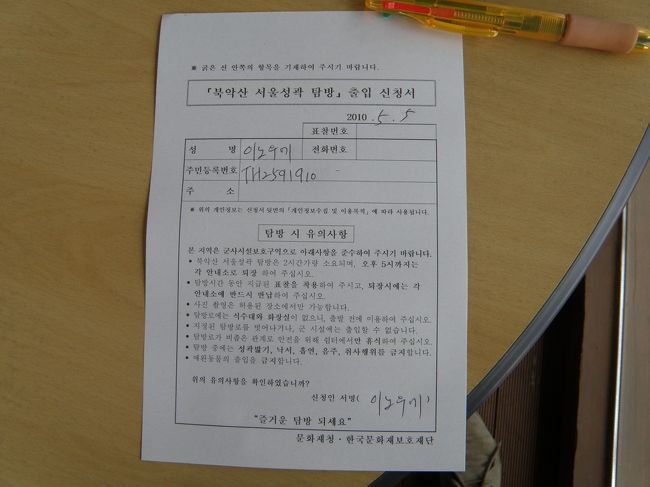 ※ 굵은 선 안쪽의 항목을 기재하여 주시기 바랍니다.
『북악산 서울성곽 탐방』 출입 신청서
2010. 5. 5
표찰번호
성 명 이노우에 전화번호
주민등록번호 TH2591910
주 소
※ 위의 개인정보는 신청서 뒷면의 「개인정보수집 및 이용목적」에 따라 사용됩니다.
탐방 시 유의사항
본 지역은 군사시설보호구역으로 아래사항을 준수하여 주시기 바랍니다.
• 북악산 서울성곽 탐방은 2시간가량 소요되며, 오후 5시까지는
각 안내소로 퇴장 하여 주십시오.
• 탐방시간 동안 지급된 표찰을 착용하여 주시고, 퇴장시에는 각
안내소에 반드시 반납하여 주십시오.
• 사진 촬영은 허용된 장소에서만 가능합니다.
• 탐방로에는 식수대와 화장실이 없으니, 출발 전에 이용하여 주십시오.
• 지정된 탐방로를 벗어나거나, 군 시설에는 출입할 수 없습니다.
• 탐방로가 비좁은 관계로 안전을 위해 쉼터에서만 휴식하여 주십시오.
• 탐방 중에는 성곽밟기, 낙서, 흡연, 음주, 취사행위를 금지합니다.
• 애완동물의 출입을 금지합니다.
위의 유의사항을 확인하였습니까?
신청인 서명( 이노우에 )
“즐거운 탐방 되세요”
문화재청 · 한국문화재보호재단